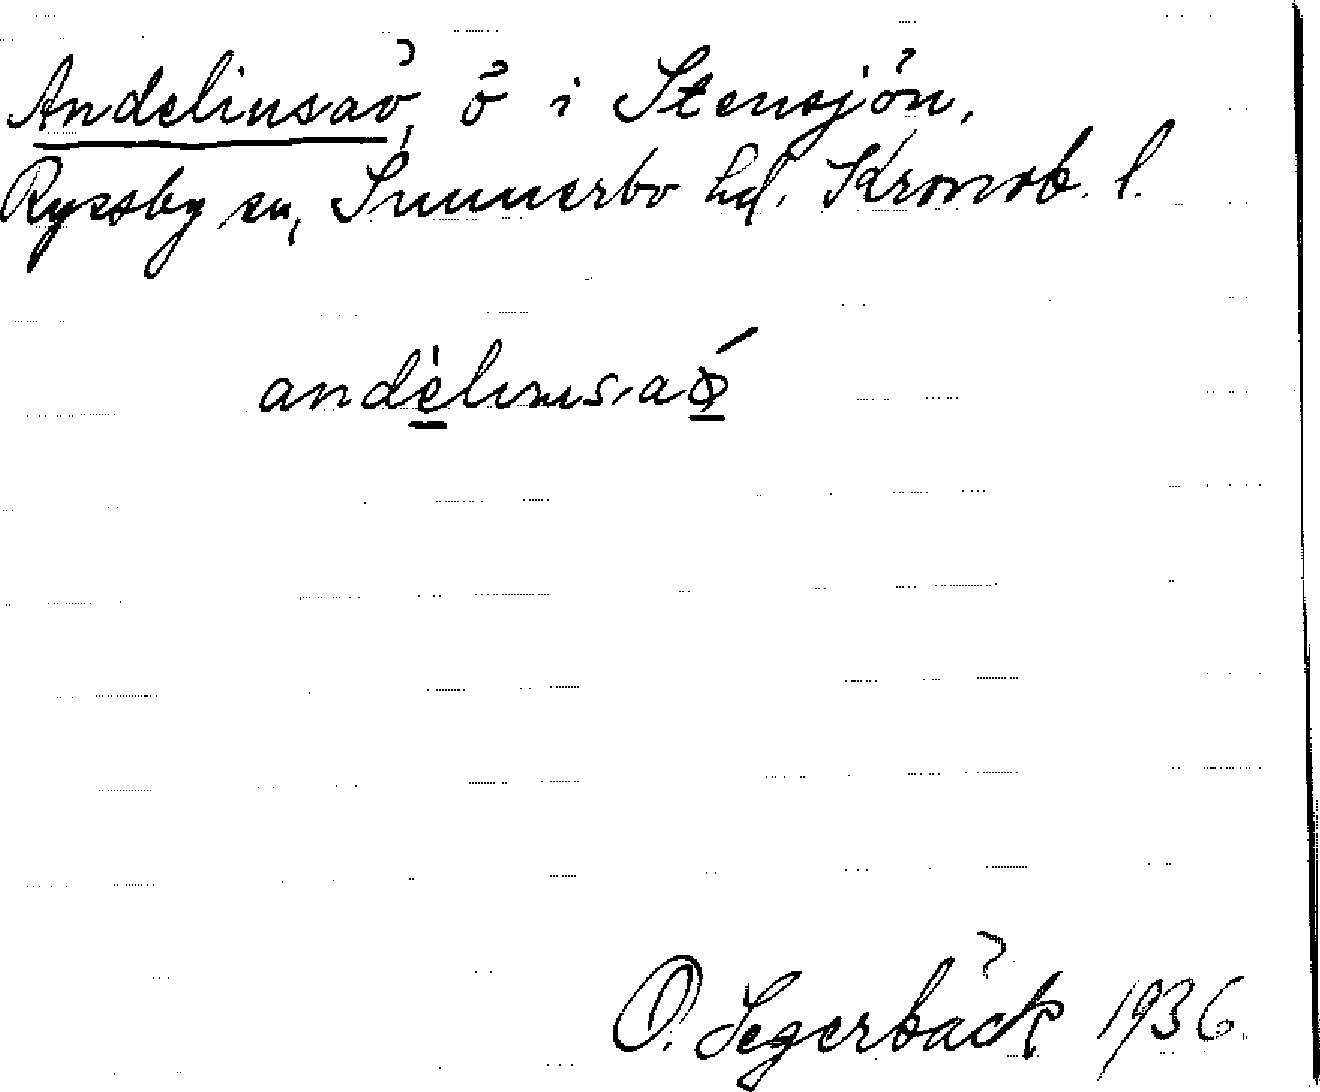 Andelinsaö, ö i Stensjön,
Ryssby sn, Sunnerbo hd. Kronob. l.
andèlinsaó̵
O. Segerbäck 1936.